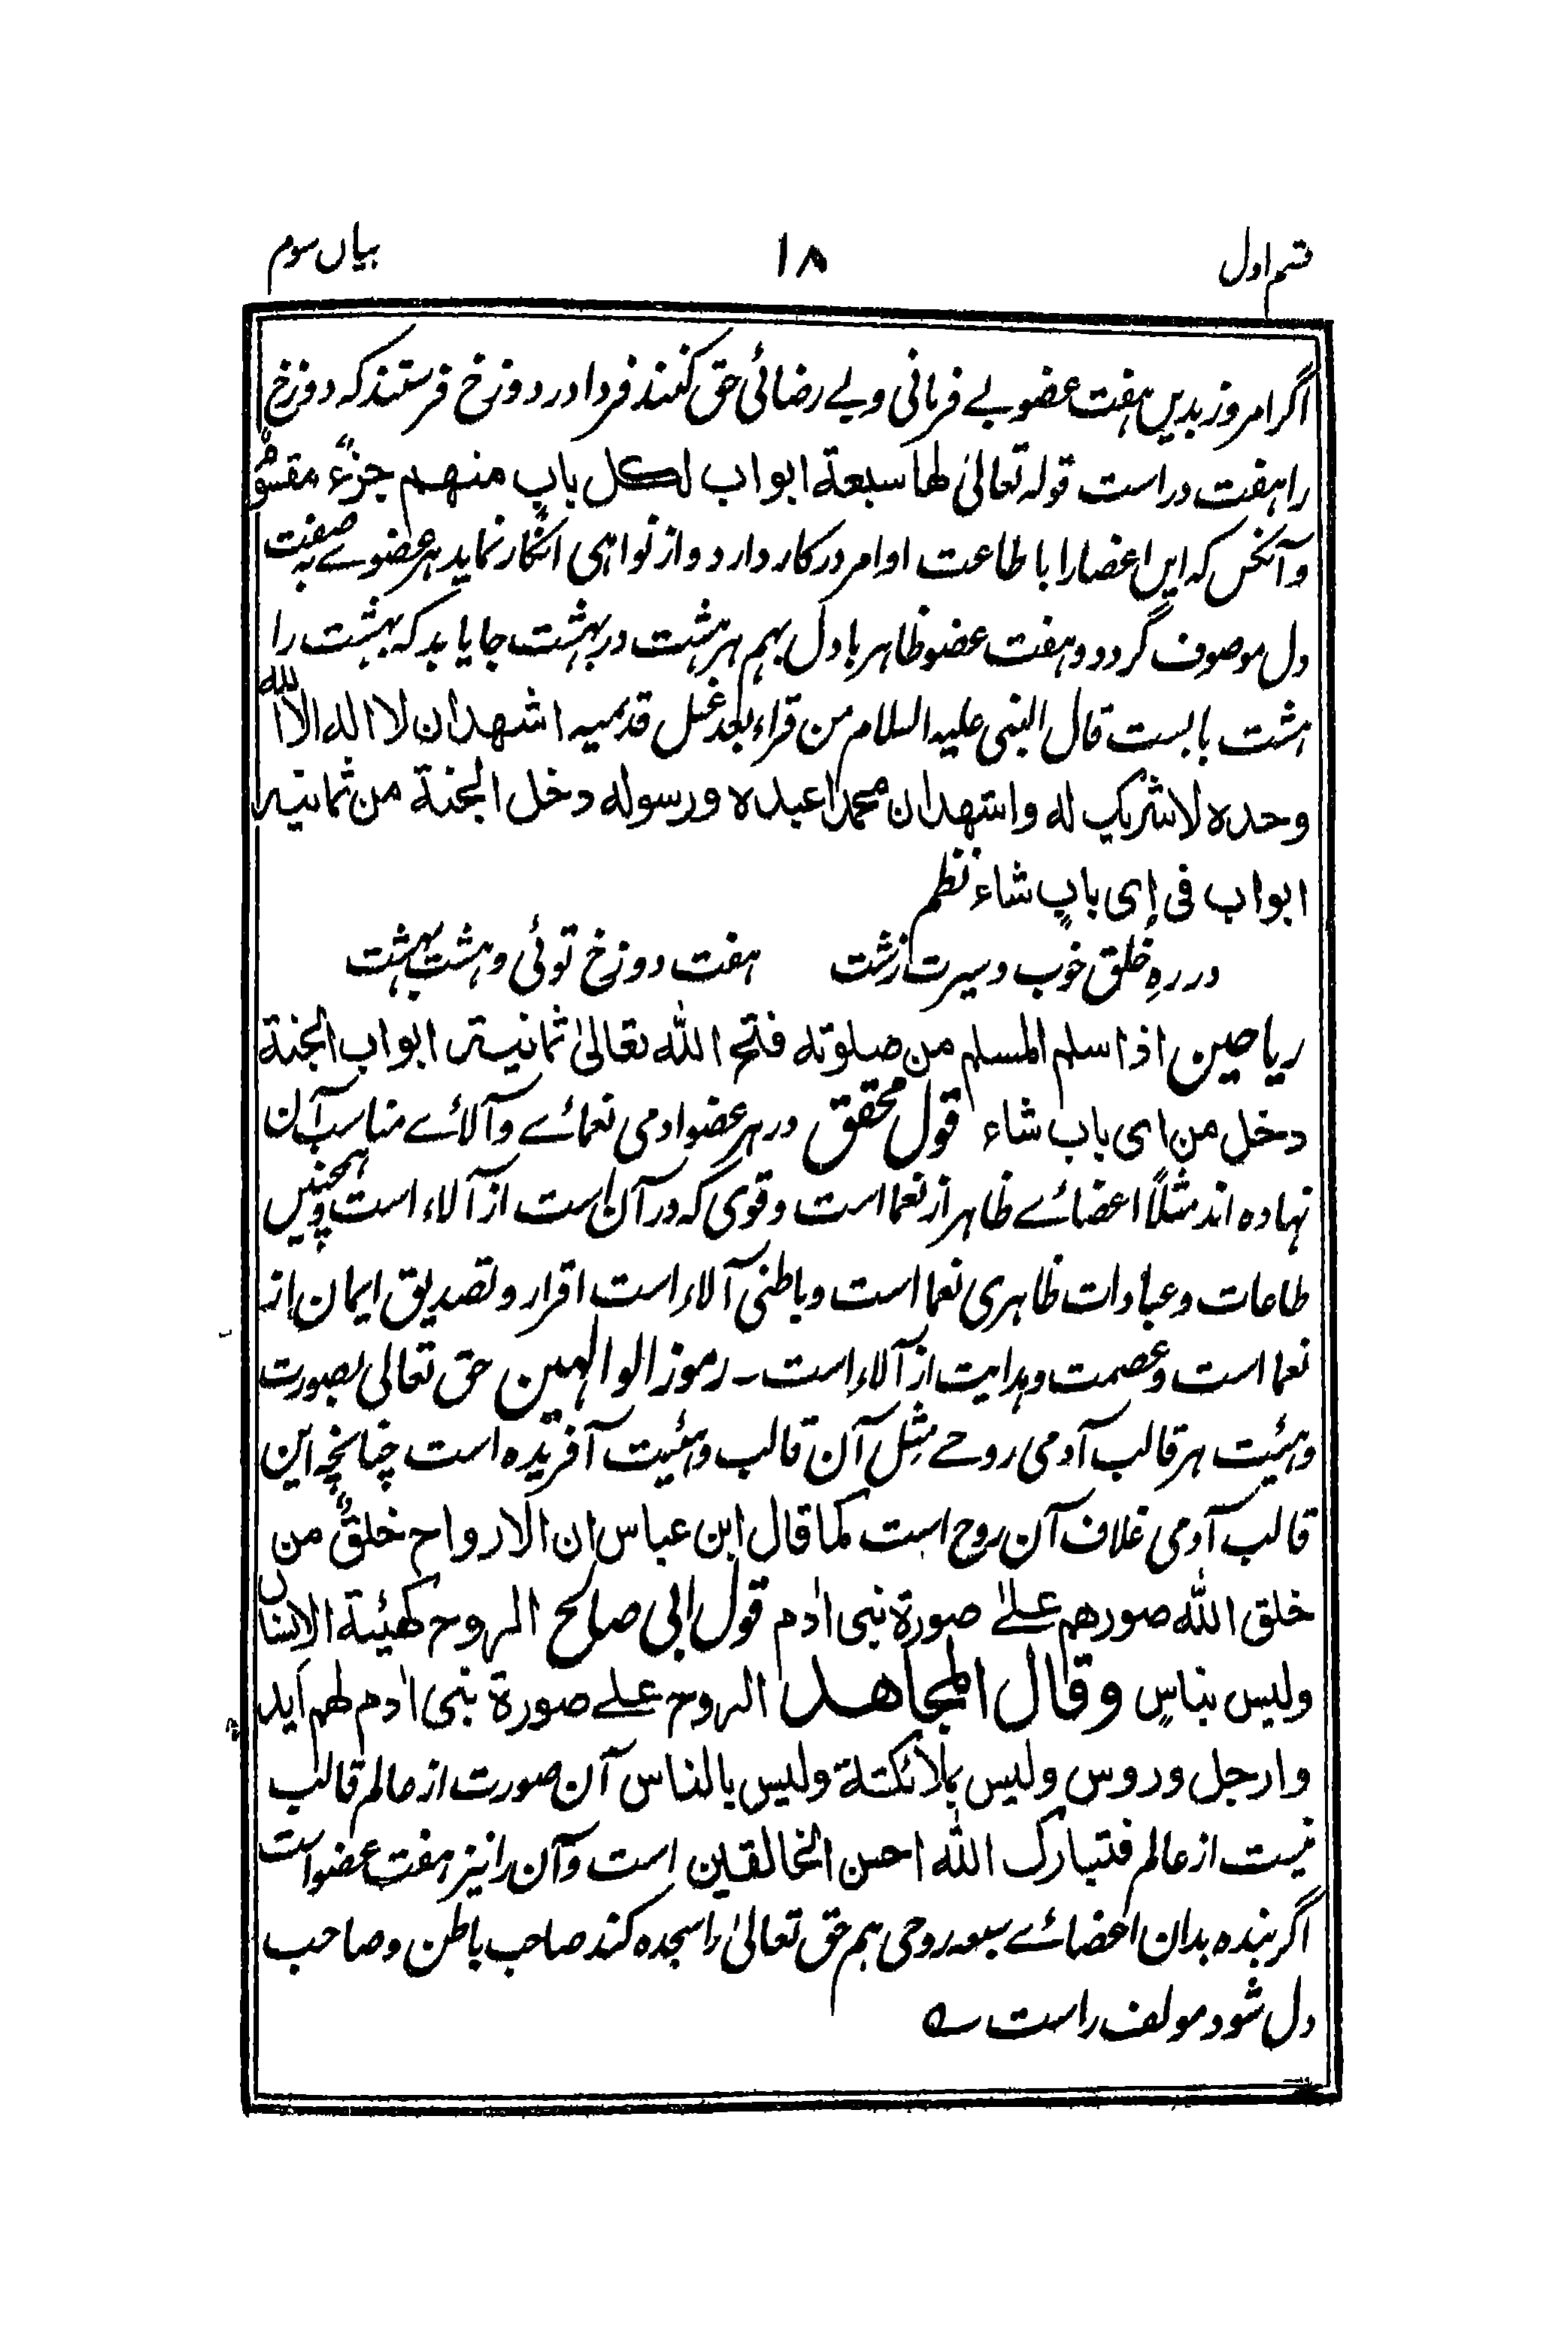 قسم اول ۱۸ بیاں سوم
اگر امروز بدیں ہفت عضو بے فرمانی و بے رضائی حق کنند فردا در دوزخ فرستند کہ دوزخ
را ہفت در است قولہ تعالیٰ لها سبعة ابواب لكل باب منهم جزءٌ مقسومٌ
و آنکس کہ ایں اعضا را با طاعت اوامر در کار دارد و از نواہی انکار نماید ہر عضوے بہ صفت
دل موصوف گردد و ہفت عضو ظاہر با دل بہم ہر ہشت در بہشت جا یابد کہ بہشت را
ہشت بابست قال النبی علیہ السلام من قراء بعد غسل قدمیہ اشهد ان لا اله الا الله
وحده لا شریک له واشهد ان محمدا عبده ورسوله دخل الجنة من ثمانیة
ابواب فی ای بابٍ شاء نظم
در رہِ خُلق خوب و سیرت زشت ہفت دوزخ توئی و ہشت بہشت
ریاحین اذا سلم المسلم من صلوته فتح الله تعالیٰ ثمانیة ابواب الجنة
دخل من ای باب شاء قول محقق در ہر عضو ادمی نعمائے و آلائے مناسب آن
نہادہ اند مثلاً اعضائے ظاہر از نعما است و قوی کہ در آن است از آلاء است و ہمچنیں
طاعات و عبادات ظاہری نعما است و باطنی آلاء است اقرار و تصدیق ایمان از
نعما است و عصمت و ہدایت از آلاء است ۔ رموز الوالہین حق تعالی بصورت
و ہئیت ہر قالب آدمی روحے مثل آن قالب و ہئیت آفریدہ است چنانچہ این
قالب آدمی غلاف آن روح است کما قال ابن عباس ان الارواح خلقٌ من
خلق الله صورهم علیٰ صورة بنی ادم قول ابی صالح الروح کهیئة الانسان
ولیس بناسٍ وقال المجاهد الروح علے صورة بنی ادم لهم اید
وارجل وروس ولیس بملائکتة ولیس بالناس آن صورت از عالم قالب
نیست از عالم فتبارک الله احسن الخالقین است و آن را نیز ہفت عضو است
اگر بندہ بدان اعضائے سبعہ روحی ہم حق تعالیٰ را سجدہ کند صاحب باطن و صاحب
دل شود مولف راست ے